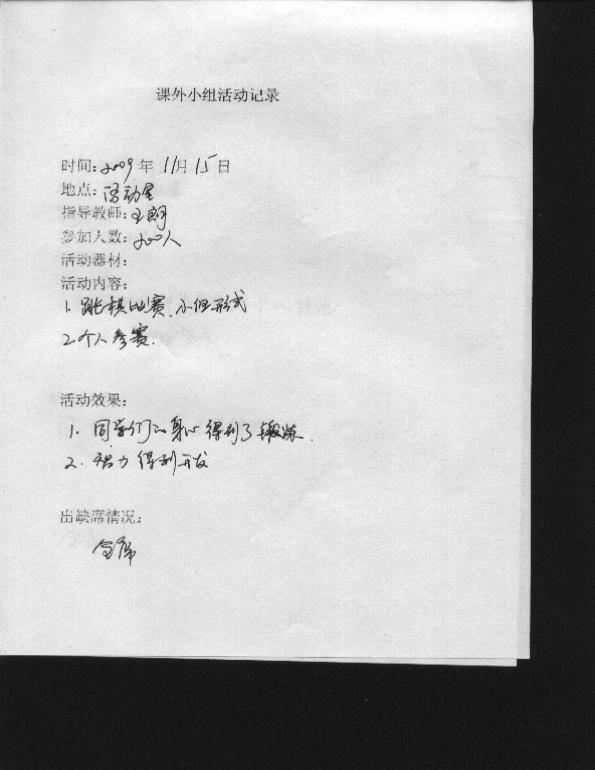 课外小组活动记录
时间：2009年 11月 15日
地点：活动室
指导教师：王朝
参加人数：200人
活动器材：
活动内容：
1. 跳棋比赛，小组形式
2. 个人参赛.
活动效果：
1. 同学们的身心得到了锻炼.
2. 智力得到开发
出缺席情况：
全席